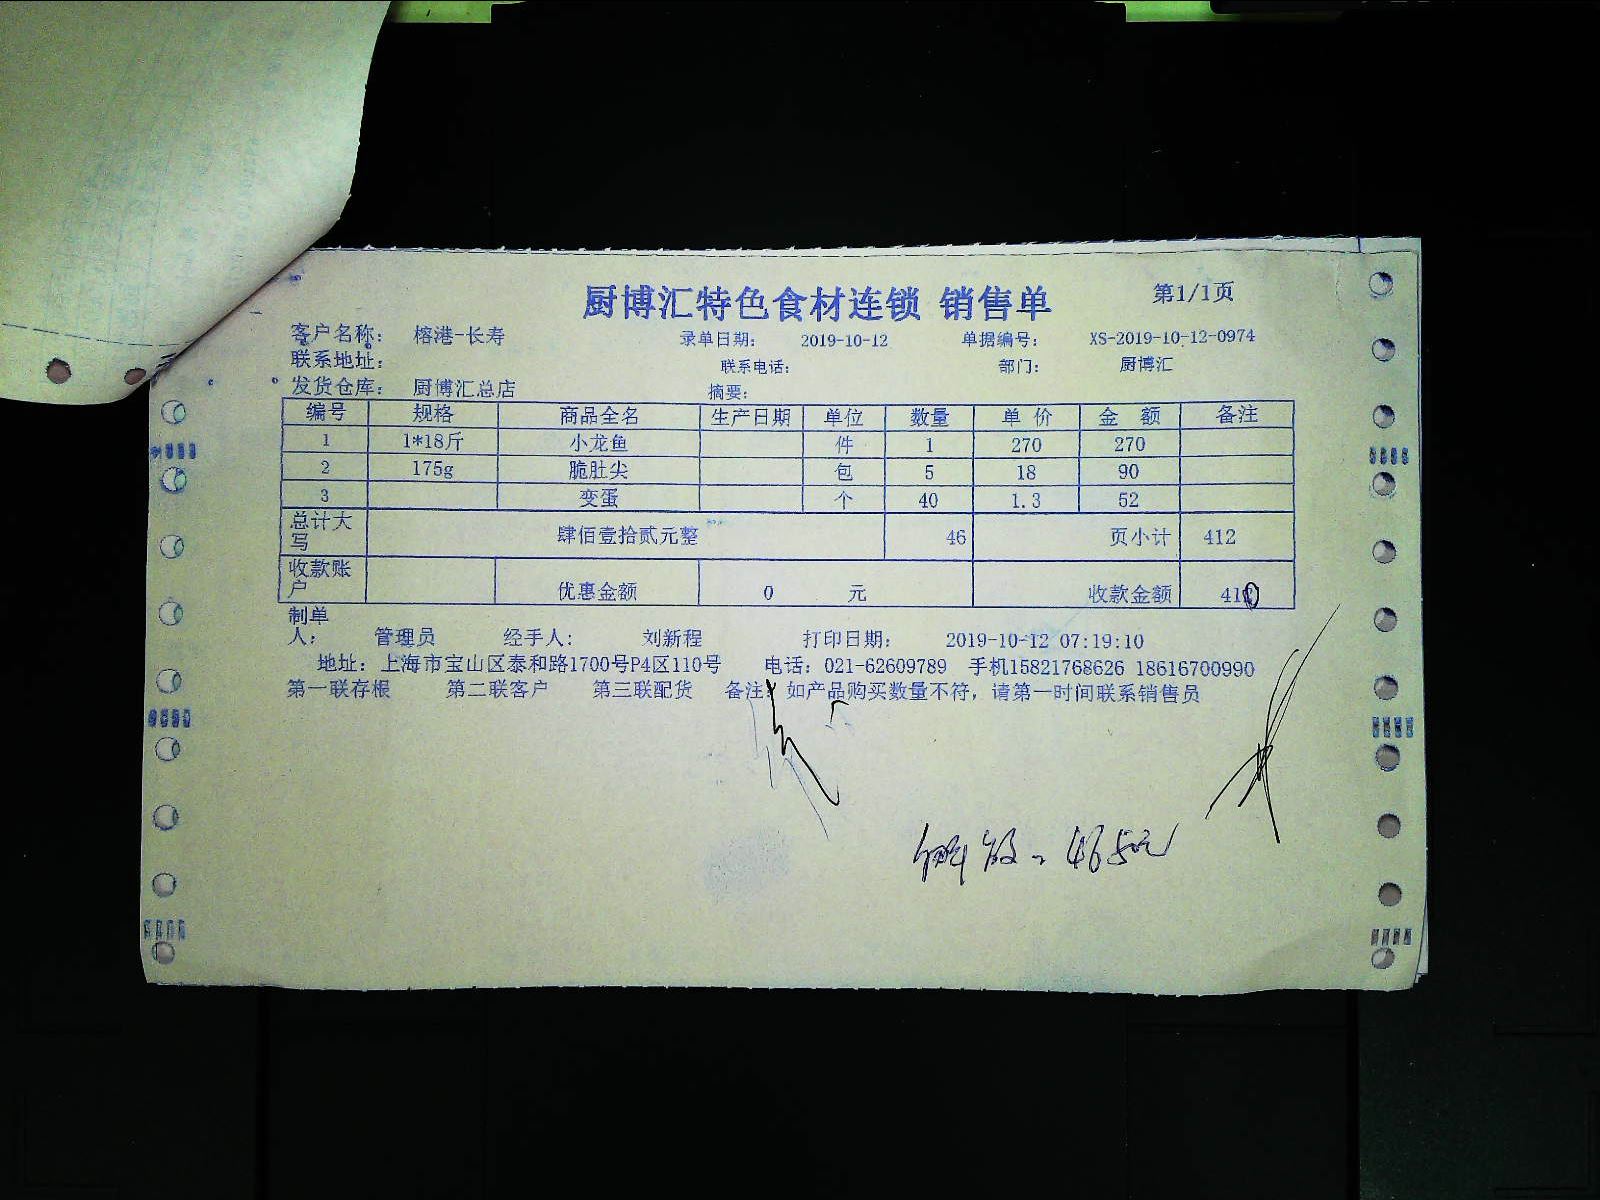 厨博汇特色食材连锁 销售单 第1/1页
客户名称： 榕港-长寿 录单日期： 2019-10-12 单据编号： XS-2019-10-12-0974
联系地址： 联系电话： 部门： 厨博汇
发货仓库： 厨博汇总店 摘要：
编号 规格 商品全名 生产日期 单位 数量 单 价 金 额 备注
1 1*18斤 小龙鱼 件 1 270 270
2 175g 脆肚尖 包 5 18 90
3 变蛋 个 40 1.3 52
总计大写 肆佰壹拾贰元整 46 页小计 412
收款账户 优惠金额 0 元 收款金额 410
制单
人： 管理员 经手人： 刘新程 打印日期： 2019-10-12 07:19:10
地址：上海市宝山区泰和路1700号P4区110号 电话：021-62609789 手机15821768626 18616700990
第一联存根 第二联客户 第三联配货 备注：如产品购买数量不符，请第一时间联系销售员